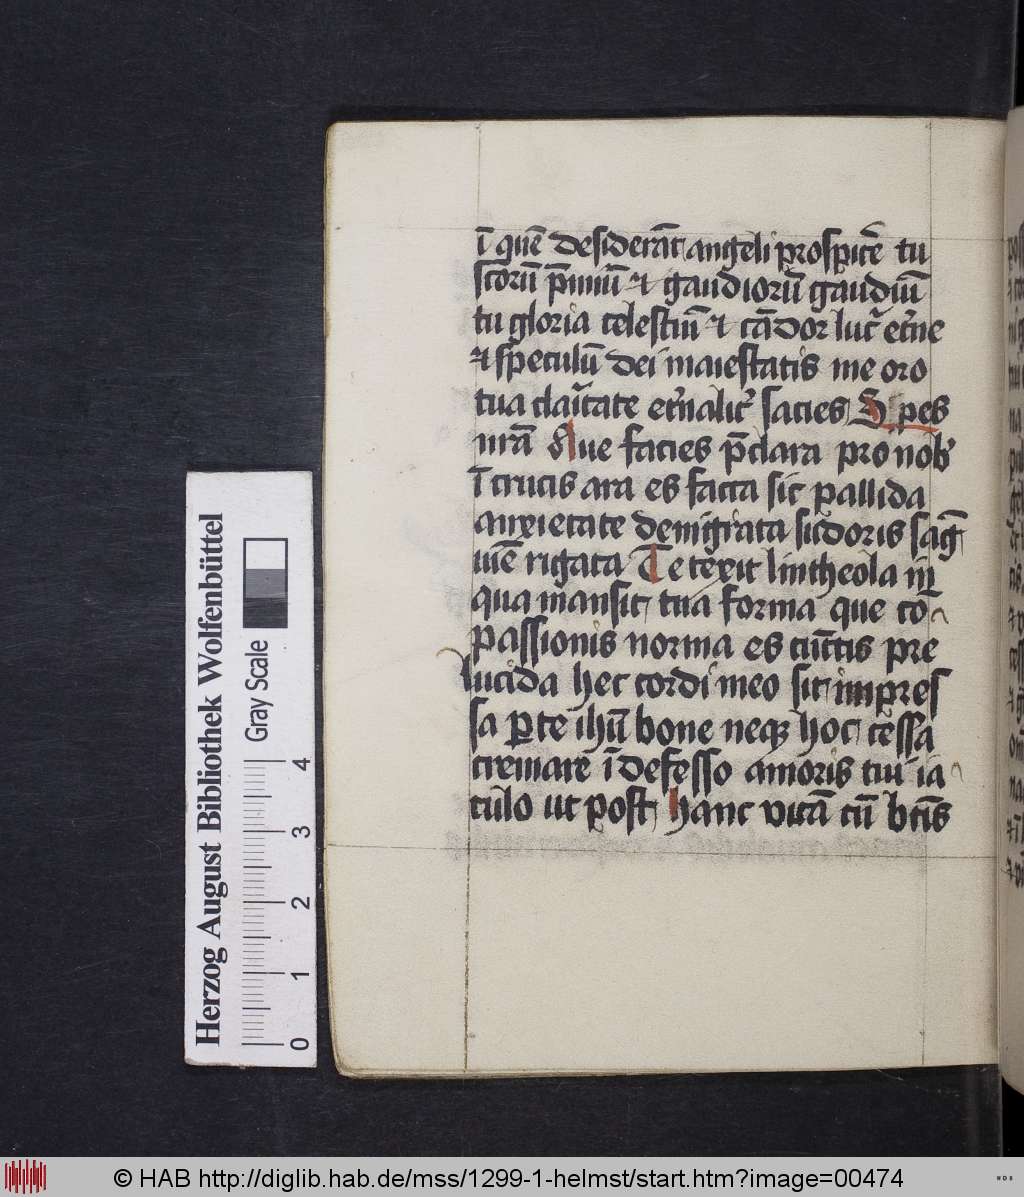 ī quē desiderāt angeli prospicē tu
sc̄orū p̄miū ⁊ gaudiorū gaudiū
tu gloria celestiū ⁊ cādor luc̄ et̄ne
⁊ speculū dei maiestatis me oro
tua claritate et̄nalit̄ sacies Spes
nr̄ā Aue facies p̄clara pro nob̄
ī crucis ara es facta sic pallida
anxietate denigrata sudoris saḡ
uīe rigata Te texit lintheola in
qua mansit tua forma que co
passionis norma es cūctis pre
lucida hec cordi meo sit impres
sa ꝑ te ihū bone neqꝫ hoc cessa
cremare īdefesso amoris tui ia
culo ut post hanc vitā cū bt̄is
Herzog August Bibliothek Wolfenbüttel
Gray Scale
0 1 2 3 4
© HAB http://diglib.hab.de/mss/1299-1-helmst/start.htm?image=00474